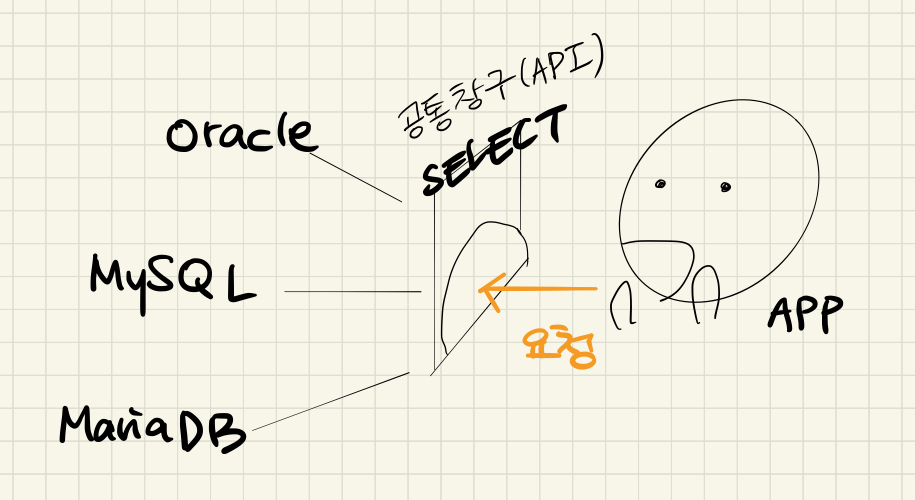 공통창구(API)
SELECT
Oracle
MySQL
MariaDB
요청
APP